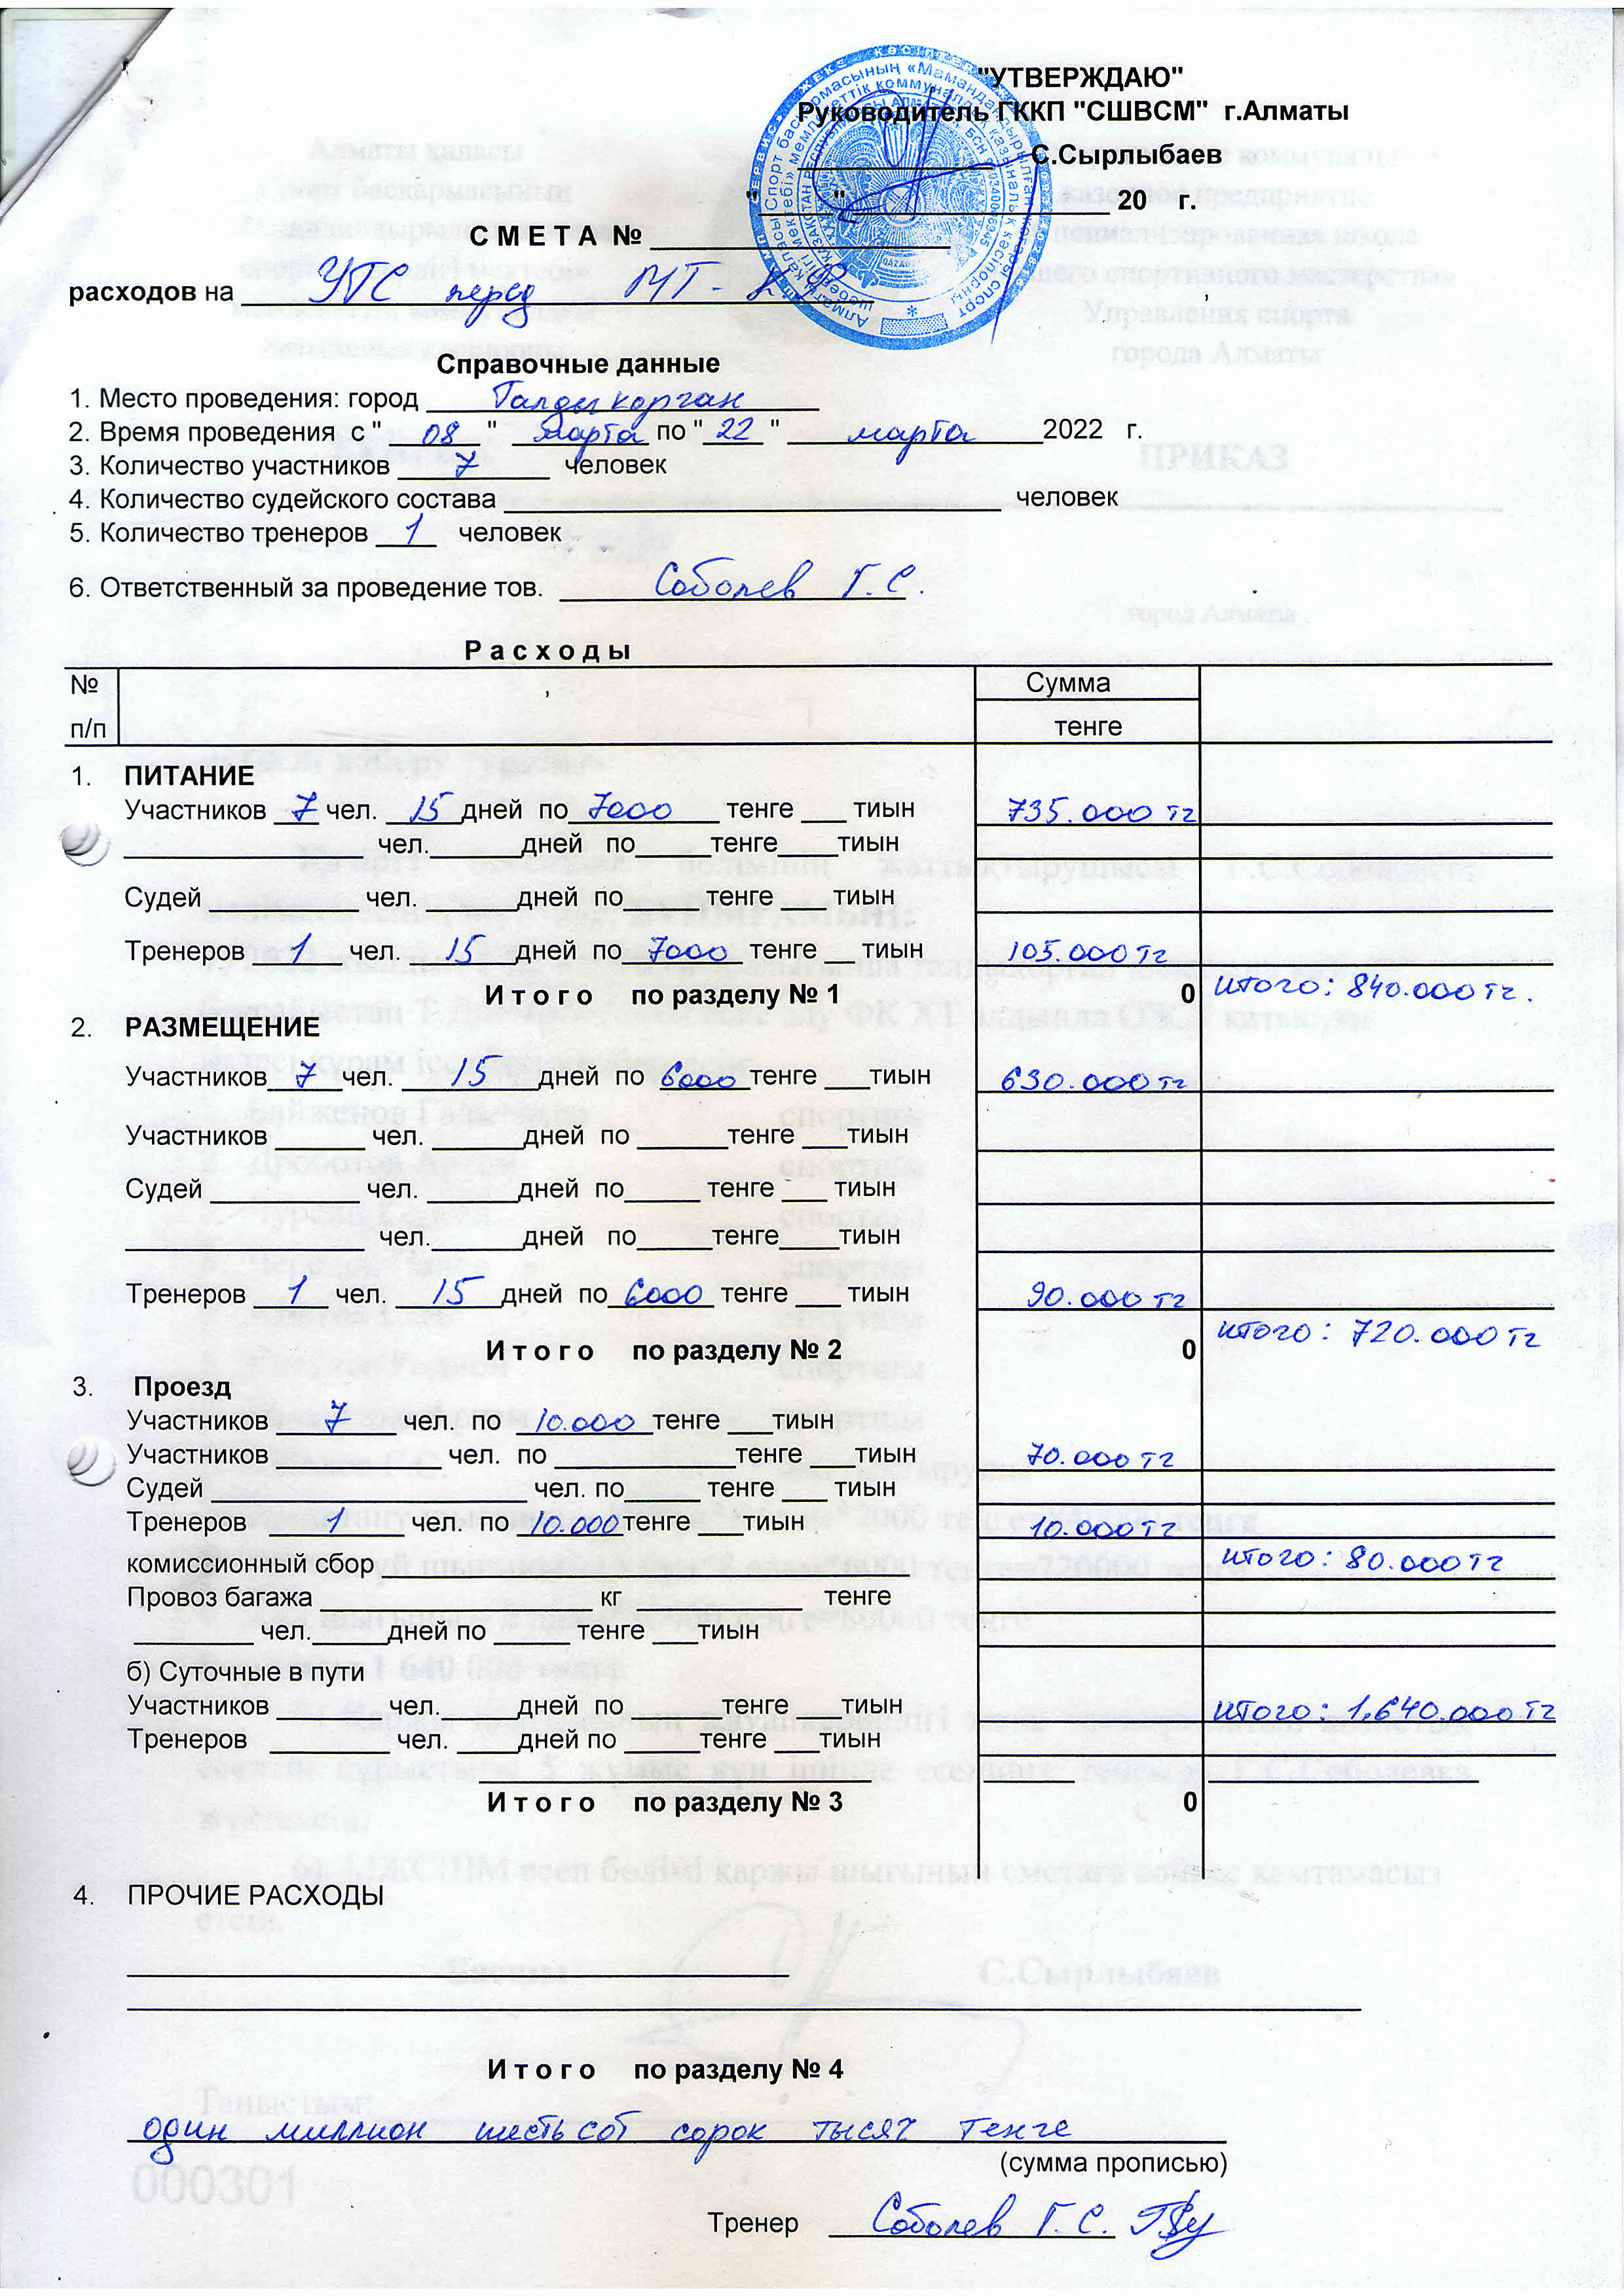 "УТВЕРЖДАЮ"
Руководитель ГККП "СШВСМ" г.Алматы
С.Сырлыбаев
"_____" __________________ 20 г.
С М Е Т А № ____________________
расходов на УТС перед МТ -
Справочные данные
1. Место проведения: город Талдыкорган
2. Время проведения с " 08 " марта по " 22 " марта 2022 г.
3. Количество участников 7 человек
4. Количество судейского состава ____________________ человек
5. Количество тренеров 1 человек
6. Ответственный за проведение тов. Соболев Г.С.
Р а с х о д ы
№ п/п Сумма
тенге
1. ПИТАНИЕ
Участников 7 чел. 15 дней по 7000 тенге ___ тиын 735.000 тг
________________ чел.______дней по_____тенге____тиын
Судей __________ чел. ______дней по_____ тенге ___ тиын
Тренеров 1 чел. 15 дней по 7000 тенге __ тиын 105.000 тг
И т о г о по разделу № 1 0 итого: 840.000 тг.
2. РАЗМЕЩЕНИЕ
Участников 7 чел. 15 дней по 6000 тенге ___тиын 630.000 тг
Участников ______ чел. ______дней по ______тенге ___тиын
Судей __________ чел. ______дней по_____ тенге ___ тиын
________________ чел.______дней по_____тенге____тиын
Тренеров 1 чел. 15 дней по 6000 тенге ___ тиын 90.000 тг
И т о г о по разделу № 2 0 итого: 720.000 тг
3. Проезд
Участников 7 чел. по 10.000 тенге ___тиын
Участников ___________ чел. по ____________тенге ___тиын 70.000 тг
Судей _____________________ чел. по_____ тенге ___ тиын
Тренеров 1 чел. по 10.000 тенге ___тиын 10.000 тг
комиссионный сбор ___________________________________ итого: 80.000 тг
Провоз багажа __________________ кг ____________ тенге
________ чел._____дней по _____ тенге ___тиын
б) Суточные в пути
Участников _______ чел._____дней по ______тенге ___тиын итого: 1.640.000 тг
Тренеров ________ чел. ____дней по _____тенге ___тиын
И т о г о по разделу № 3 0
4. ПРОЧИЕ РАСХОДЫ
И т о г о по разделу № 4
один миллион шестьсот сорок тысяч тенге
(сумма прописью)
000301
Тренер Соболев Г. С.